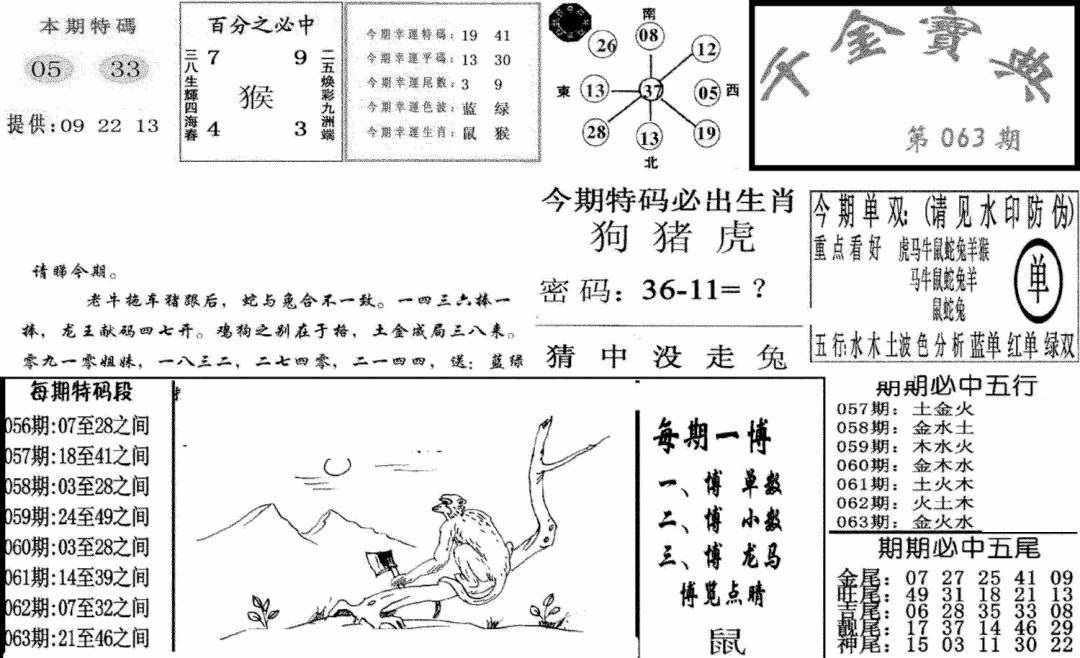 本期特碼
05 33
提供:09 22 13
百分之必中
三八生輝四海春
7 9
猴
4 3
二五焕彩九洲端
今期幸運特碼: 19 41
今期幸運平碼: 13 30
今期幸運尾數: 3 9
今期幸運色波: 蓝 绿
今期幸運生肖: 鼠 猴
南
26 08 12
東 13 37 05 西
28 13 19
北
金寶典
第 063 期
今期特码必出生肖
狗 猪 虎
密码: 36-11= ?
猜 中 没 走 兔
今期单双:(请见水印防伪)
重点看好 虎马牛鼠蛇兔羊猴
马牛鼠蛇兔羊
鼠蛇兔
单
五行:水木土波色分析蓝单红单绿双
请睇今期。
老牛拖车猪跟后，蛇与兔合不一致。一四三六捧一
捧，龙王献码四七开。鸡狗之别在于格，土金成局三八来。
零九一零姐妹，一八三二，二七四零，二一四四，送：蓝绿
每期特码段
056期:07至28之间
057期:18至41之间
058期:03至28之间
059期:24至49之间
060期:03至28之间
061期:14至39之间
062期:07至32之间
063期:21至46之间
每期一博
一、博 单数
二、博 小数
三、博 龙马
博览点睛
鼠
期期必中五行
057期: 土金火
058期: 金水土
059期: 木水火
060期: 金木水
061期: 土火木
062期: 火土木
063期: 金火水
期期必中五尾
金尾: 07 27 25 41 09
旺尾: 49 31 18 21 13
吉尾: 06 28 35 33 08
靓尾: 17 37 14 46 29
神尾: 15 03 11 30 22